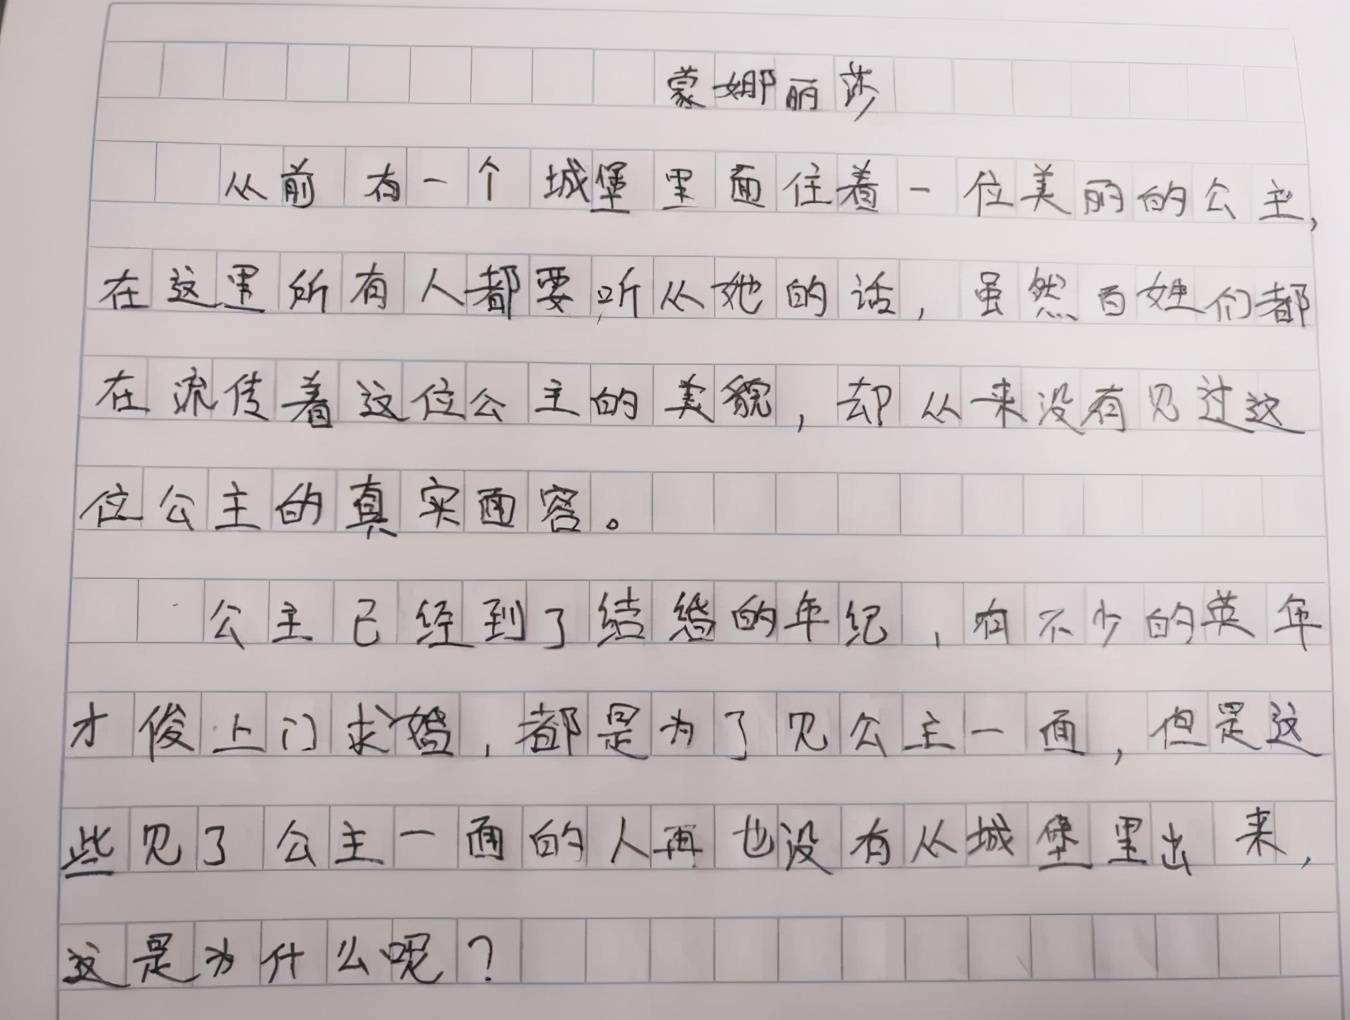 蒙娜丽莎
从前有一个城堡里面住着一位美丽的公主,
在这里所有人都要听从她的话,虽然百姓们都
在流传着这位公主的美貌,却从来没有见过这
位公主的真实面容。
公主已经到了结婚的年纪,有不少的英年
才俊上门求婚,都是为了见公主一面,但是这
些见了公主一面的人再也没有从城堡里出来,
这是为什么呢?